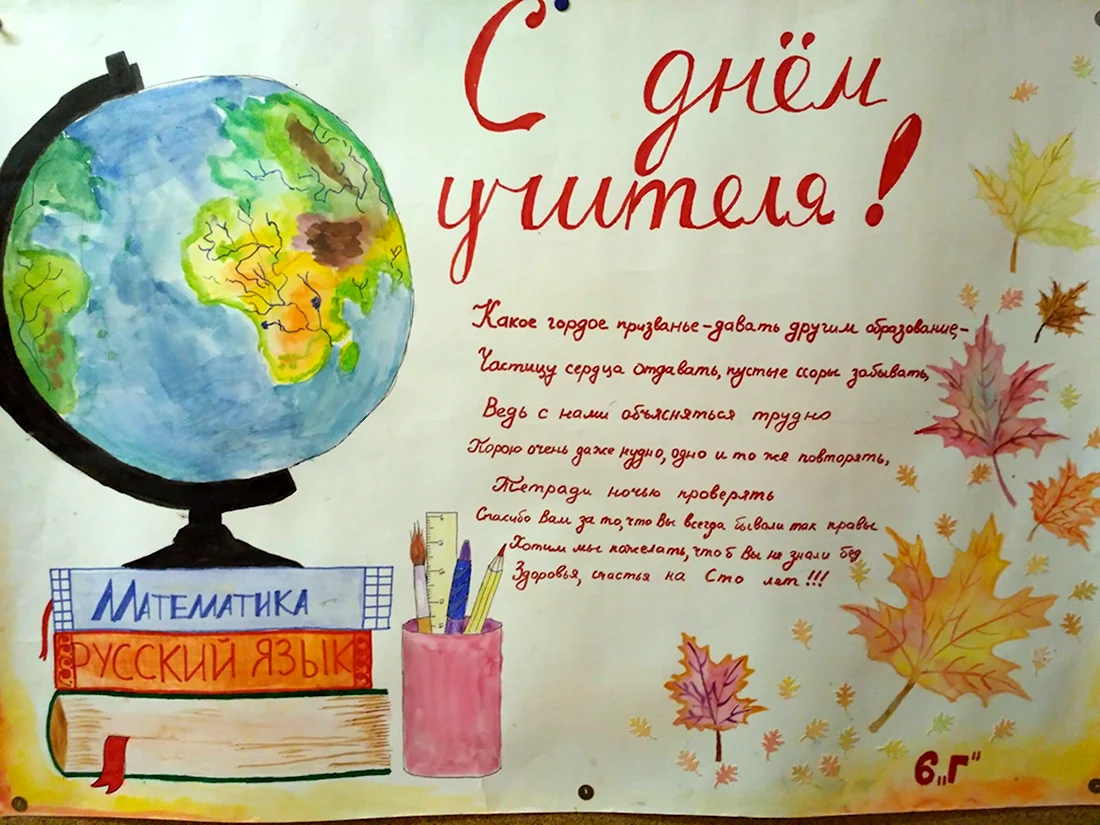 С днём
учителя!
Какое гордое призванье – давать другим образование, –
Частицу сердца отдавать, пустые ссоры забывать,
Ведь с нами объясняться трудно
Порою очень даже нудно, одно и то же повторять,
Тетради ночью проверять
Спасибо Вам за то, что Вы всегда бывали так правы
Хотим мы пожелать, чтоб Вы не знали бед
Здоровья, счастья на Сто лет!!!
МАТЕМАТИКА
РУССКИЙ ЯЗЫК
6„Г"